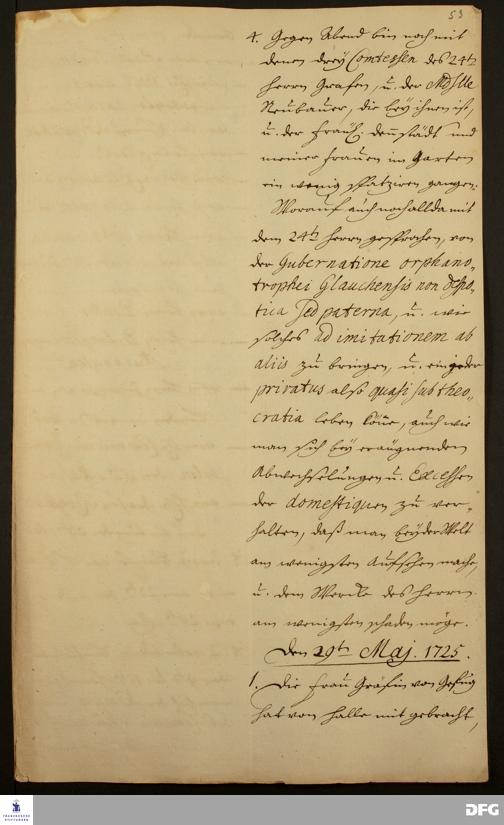 53
4. Gegen Abend bin noch mit
denen drey Comtessen des 24th
Herrn Grafen, u. der Mdslle
Neubauer, die bey ihnen ist,
u. der Frau denstädt und
meiner Frauen im Garten
ein wenig spatziren gangen.
Worauf auch noch allda mit
dem 24th Herrn gesprochen, von
der Gubernatione orphano-
trophei Glauchensis non despo-
tica sed paterna, u. wie
solches ad imitationem ab
aliis zu bringen, u. ein jeder
privatus also quasi sub theo-
cratia leben köne, auch wie
man sich bey eräugnenden
Abwechselungen u. Excessen
der domestiquen zu ver-
halten, daß man bey der Welt
am wenigsten Aufsehen mache,
u. dem Wercke des Herrn
am wenigsten schaden möge.
Den 29th Maj. 1725.
1. Die Frau Gräfin von
hat von Halle mit gebracht,
FRANCKESCHE
STIFTUNGEN
DFG